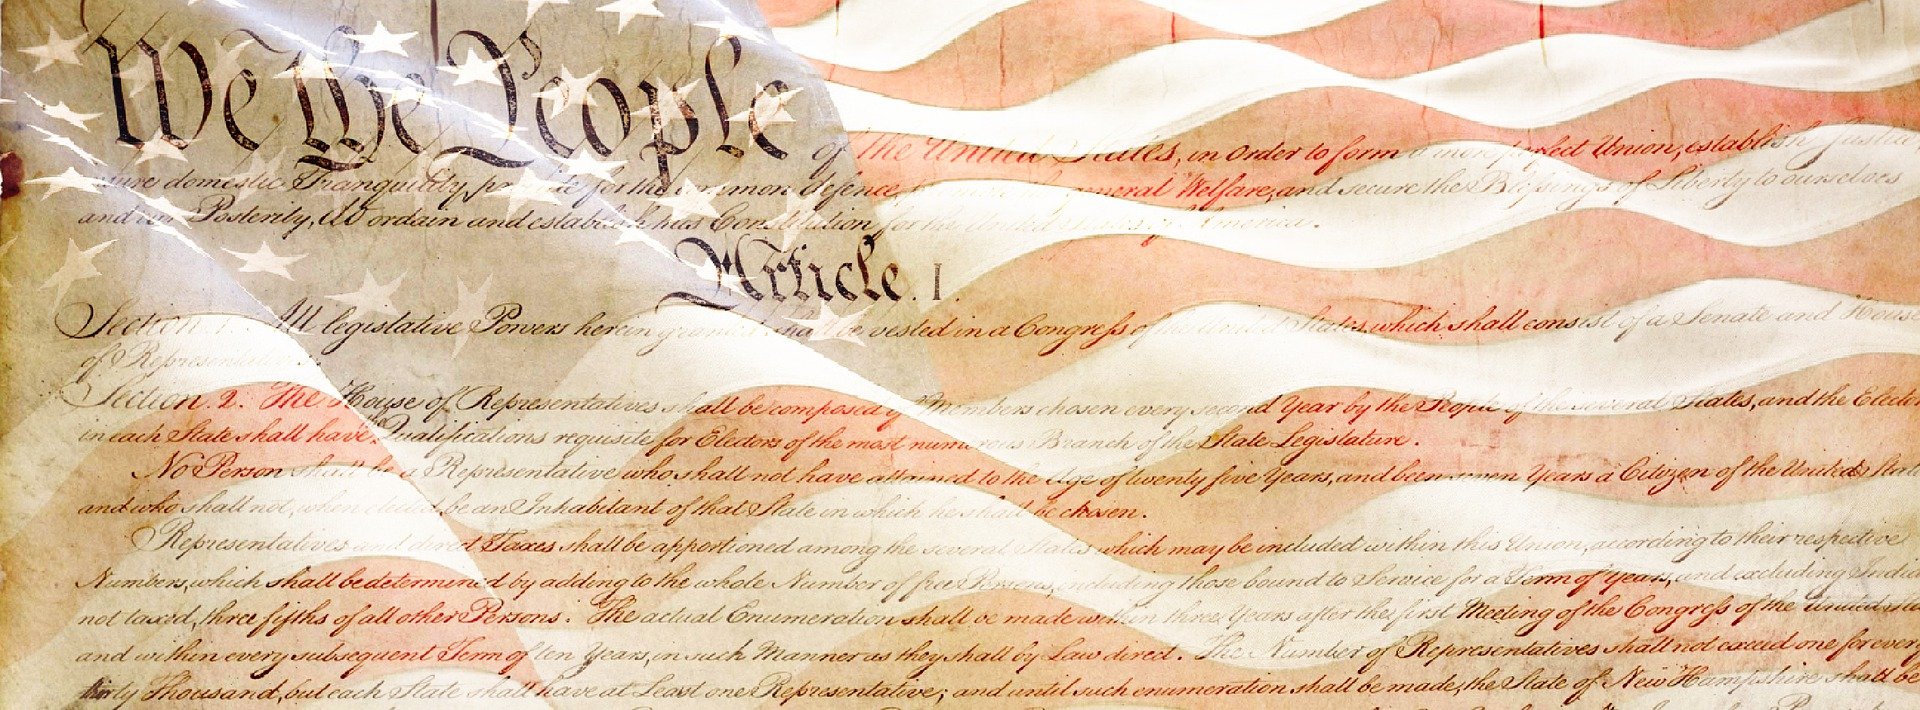 We the People of the United States, in Order to form a more perfect Union, establish Justice
sure domestic Tranquility, provide for the common defence, general Welfare, and secure the Blessings of Liberty to ourselves
and our Posterity, do ordain and establish this Constitution for the United States of America.
Article. I.
Section. 1. All legislative Powers herein granted shall be vested in a Congress of the United States, which shall consist of a Senate and House
of Representatives.
Section. 2. The House of Representatives shall be composed of Members chosen every second Year by the People of the several States, and the Elector
in each State shall have the Qualifications requisite for Electors of the most numerous Branch of the State Legislature.
No Person shall be a Representative who shall not have attained to the Age of twenty five Years, and been seven Years a Citizen of the United States
and who shall not, when elected, be an Inhabitant of that State in which he shall be chosen.
Representatives and direct Taxes shall be apportioned among the several States which may be included within this Union, according to their respective
Numbers, which shall be determined by adding to the whole Number of free Persons, including those bound to Service for a Term of Years, and excluding Indians
not taxed, three fifths of all other Persons. The actual Enumeration shall be made within three Years after the first Meeting of the Congress of the United States
and within every subsequent Term of ten Years, in such Manner as they shall by Law direct. The Number of Representatives shall not exceed one for every
thirty Thousand, but each State shall have at Least one Representative; and until such enumeration shall be made, the State of New Hampshire shall be